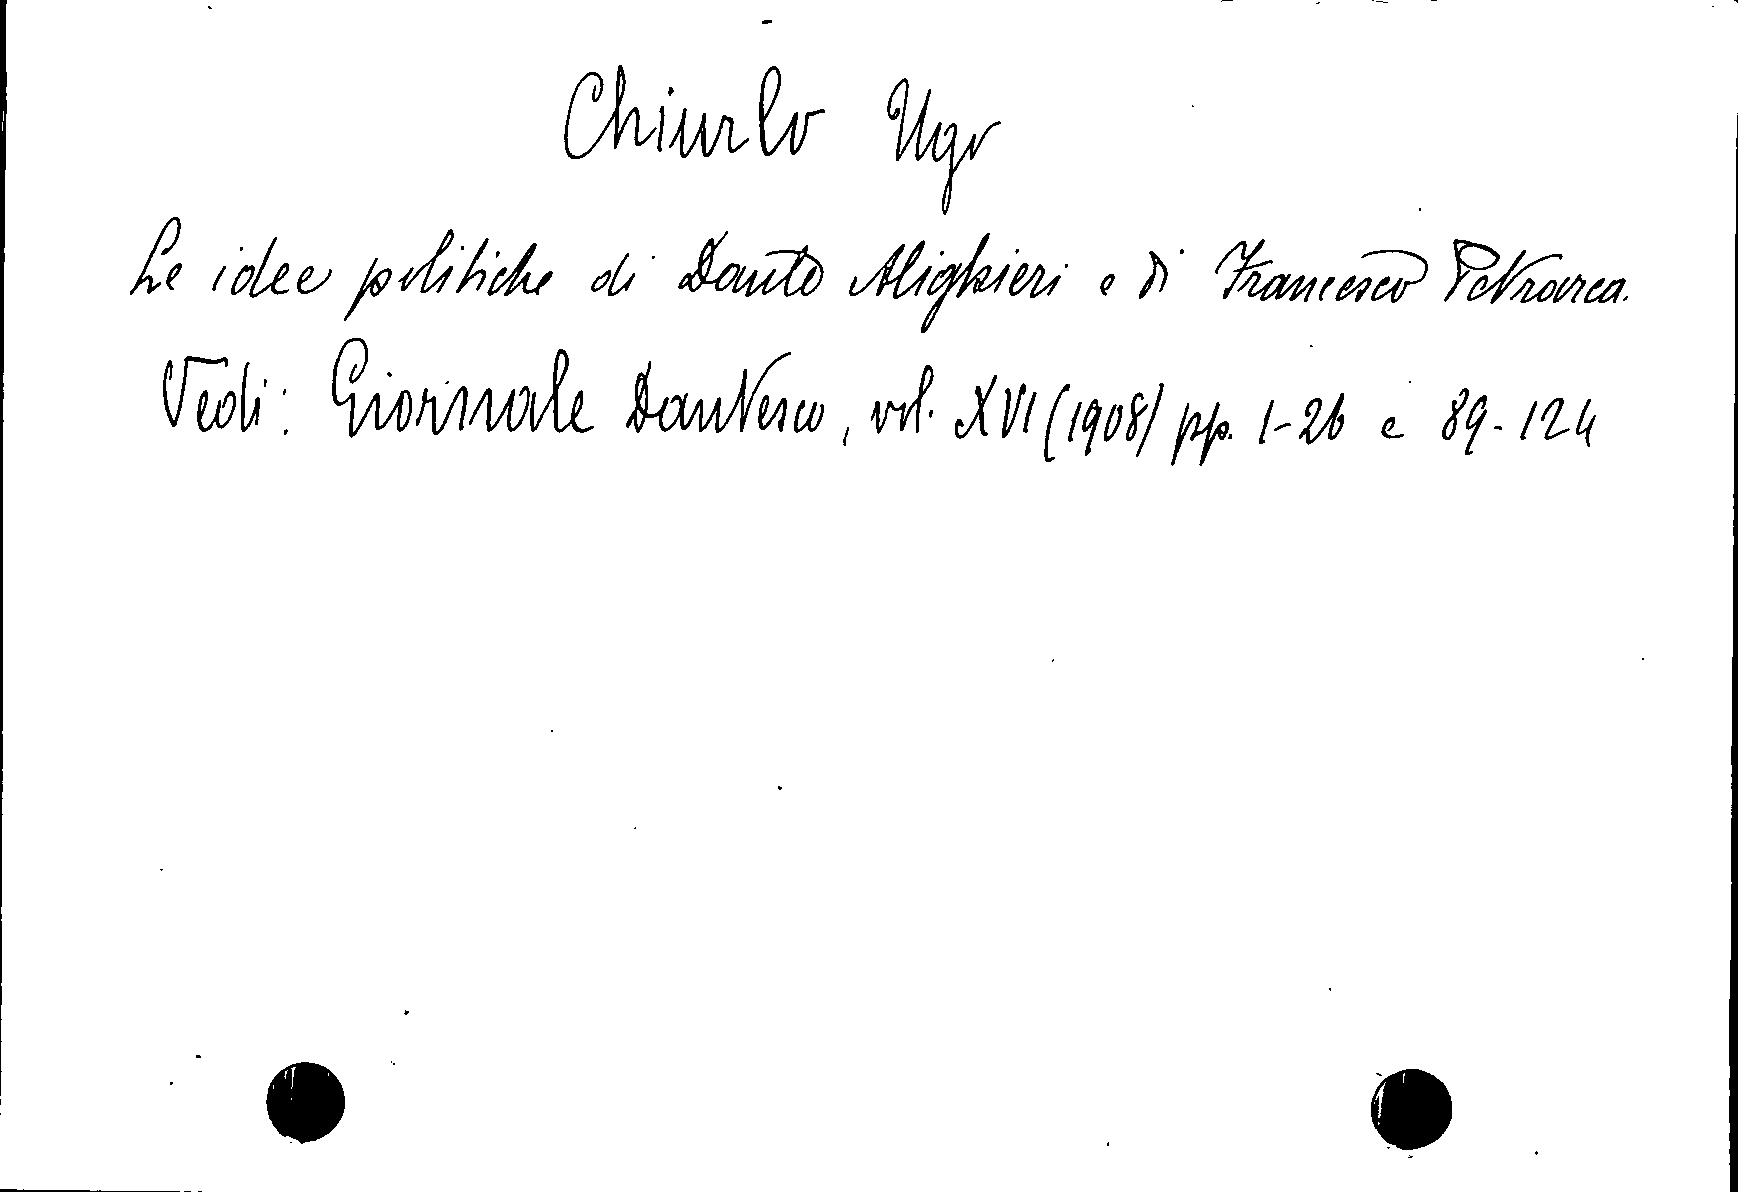 Chiurlo Ugo
Le idee politiche di Dante Alighieri e di Francesco Petrarca.
Vedi: Giornale Dantesco, vol. XVI (1908) pp. 1-26 e 89-124